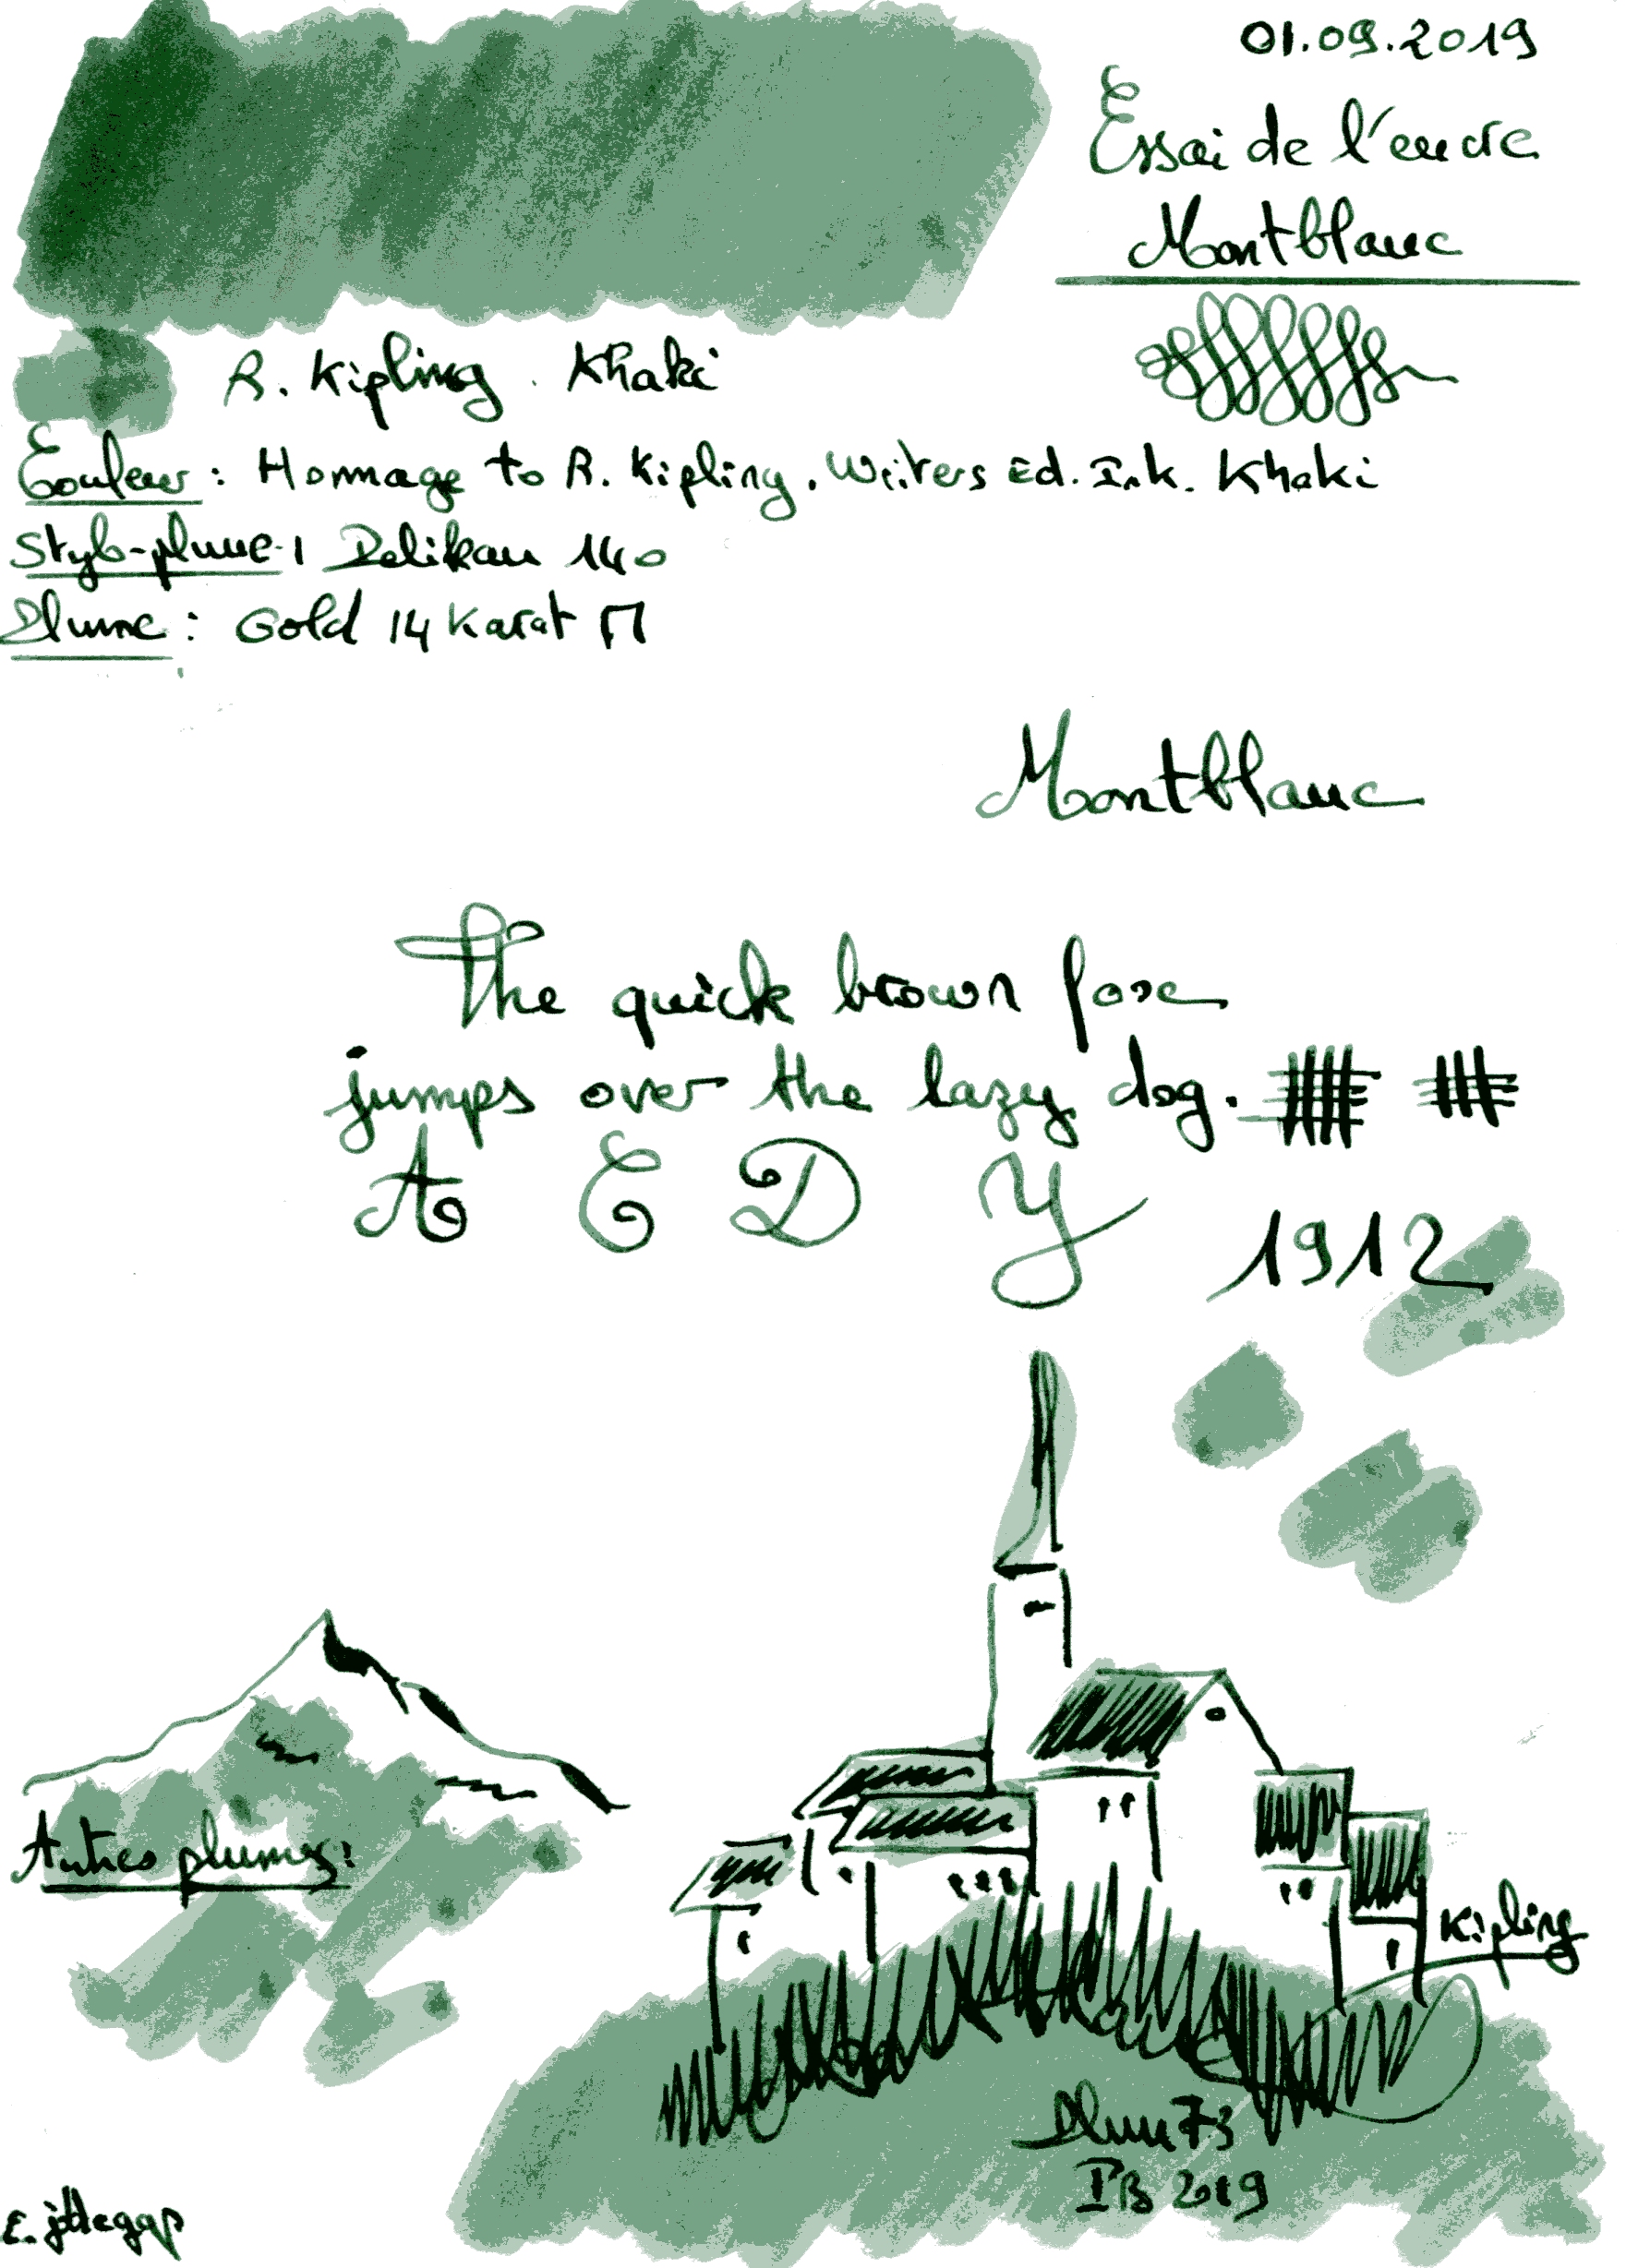 01.09.2019
Essai de l'encre
Montblanc
R. Kipling. Khaki
Couleur : Hommage to R. Kipling. Writers Ed. Ink. Khaki
Stylo-plume : Pelikan 140
Plume : Gold 14 Karat M
Montblanc
The quick brown fox
jumps over the lazy dog.
A E D Y
1912
Autres plumes :
Kipling
Plum73
IB 2019